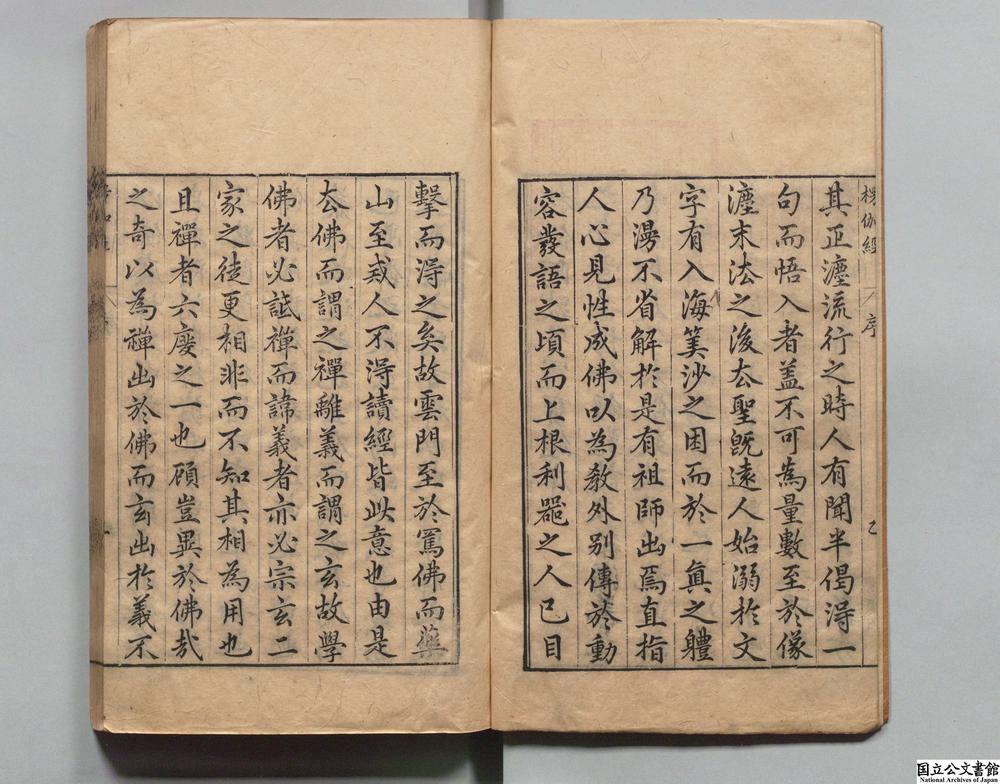 楞伽經 序
其正灋流行之時人有聞半偈淂一
句而悟入者盖不可為量數至於像
灋末法之後去聖旣遠人始溺扵文
字有入海筭沙之困而於一眞之軆
乃漫不省解扵是有祖師出焉直指
人心見性成佛以為教外别傳於動
容發語之頃而上根利噐之人已目
擊而淂之矣故雲門至於罵佛而藥
山至戒人不淂讀經皆此意也由是
去佛而謂之禪離義而謂之玄故學
佛者必詆禪而諱義者亦必宗玄二
家之徒更相非而不知其相為用也
且禪者六度之一也顧豈異於佛㢤
之奇以為禪出於佛而玄出扵義不
国立公文書館
National Archives of Japan